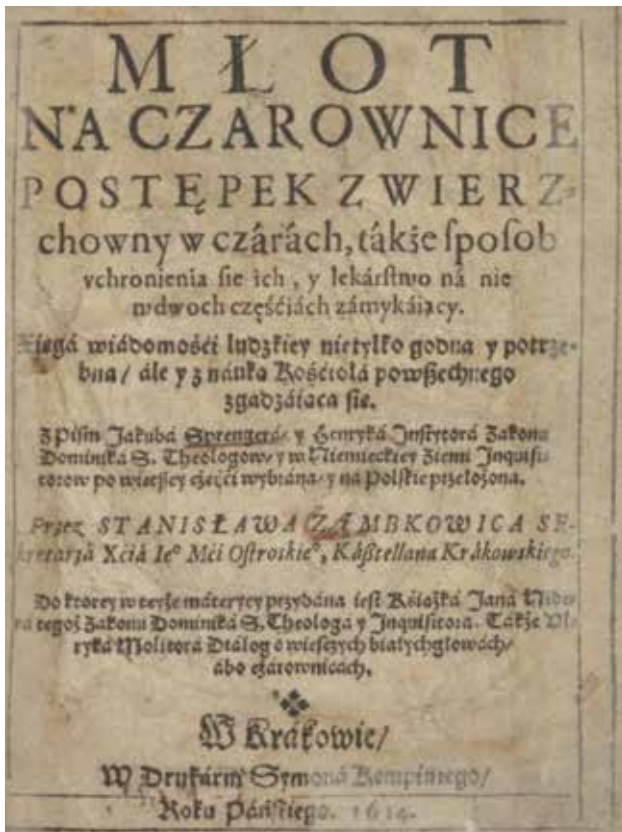 MŁOT
NA CZAROWNICE
POSTĘPEK ZWIERZ-
chowny w czárách, tákże ſpoſob
vchronienia ſie ich, y lekárſtwo ná nie
w dwoch częśćiách zámykáiący.
Xięgá wiádomośći ludzkiey nietylko godna y potrze-
bna/ ále y z náuką Kośćiołá powßechnego
zgadzáiąca ſie.
Z Piſm Jakubá Sprengerá/ y Henryká Inſtytorá Zakonu
Dominiká S. Theologow/ y w Niemieckiey Ziemi Inquiſi-
torow po więkßey częśći wybrána/ y ná Polſkie przełożona.
Przez STANISŁAWA ZĄMBKOWICA SE-
kretarzá Xćiá Ieº Mći Oſtroskieº, Káßtellana Krákowskiego.
Do ktorey w teyże máteryey przydána ieſt Kśiąſzká Janá
tegoż Zakonu Dominiká S. Theologá y Inquiſitorá. Tákże Vl-
ryká Molitorá Dialog o wießczych białychgłowách/
ábo czárownicách.
W Krákowie/
W Drukárni Symoná Kempiniego/
Roku Páńſkiego. 1614.